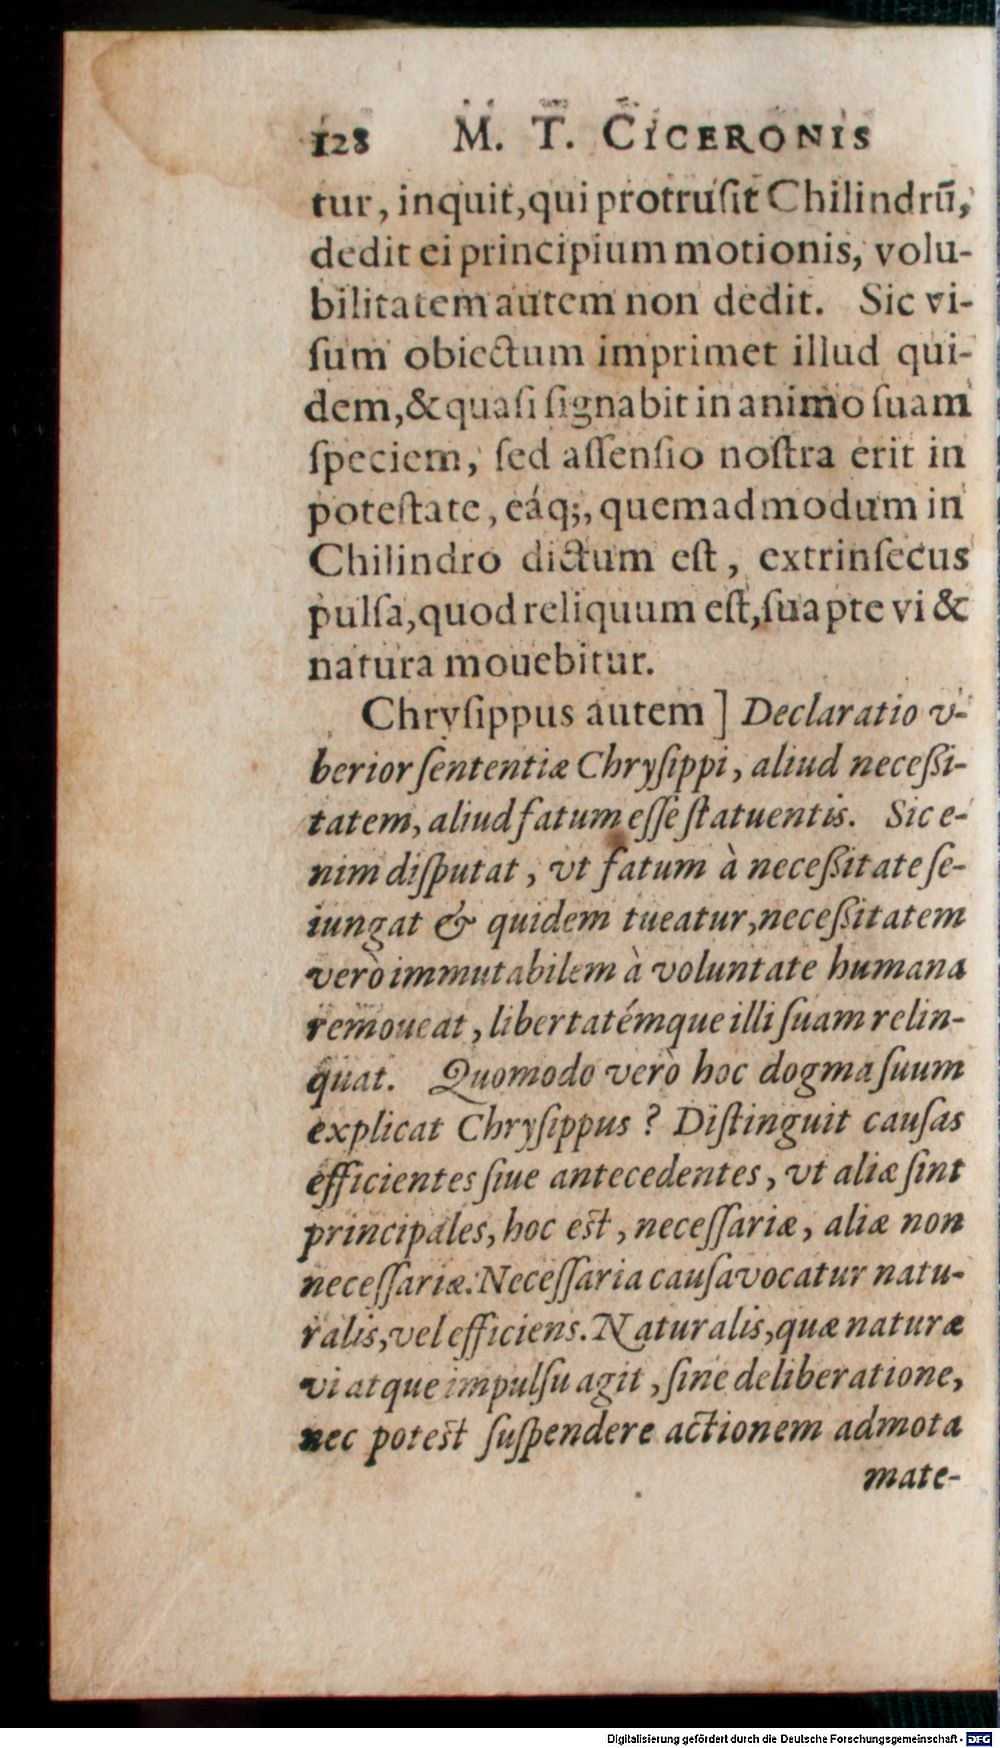 128 M. T. CICERONIS
tur, inquit, qui protruſit Chilindrũ,
dedit ei principium motionis, volu-
bilitatem autem non dedit. Sic vi-
ſum obiectum imprimet illud qui-
dem, & quaſi ſignabit in animo ſuam
ſpeciem, ſed aſſenſio noſtra erit in
poteſtate, eáq;, quemadmodum in
Chilindro dictum eſt, extrinſecus
pulſa, quod reliquum eſt, ſuapte vi &
natura mouebitur.
Chryſippus autem ] Declaratio v-
berior ſententiæ Chryſippi, aliud neceßi-
tatem, aliud fatum eſſe ſtatuentis. Sic e-
nim diſputat, vt fatum à neceßitate ſe-
iungat & quidem tueatur, neceßitatem
verò immutabilem à voluntate humana
remoueat, libertatémque illi ſuam relin-
quat. Quomodo verò hoc dogma ſuum
explicat Chryſippus ? Diſtinguit cauſas
efficientes ſiue antecedentes, vt aliæ ſint
principales, hoc eſt, neceſſariæ, aliæ non
neceſſariæ. Neceſſaria cauſa vocatur natu-
ralis, vel efficiens. Naturalis, quæ naturæ
vi atque impulſu agit, ſine deliberatione,
nec poteſt ſuſpendere actionem admota
mate-
Digitalisierung gefördert durch die Deutsche Forschungsgemeinschaft - DFG